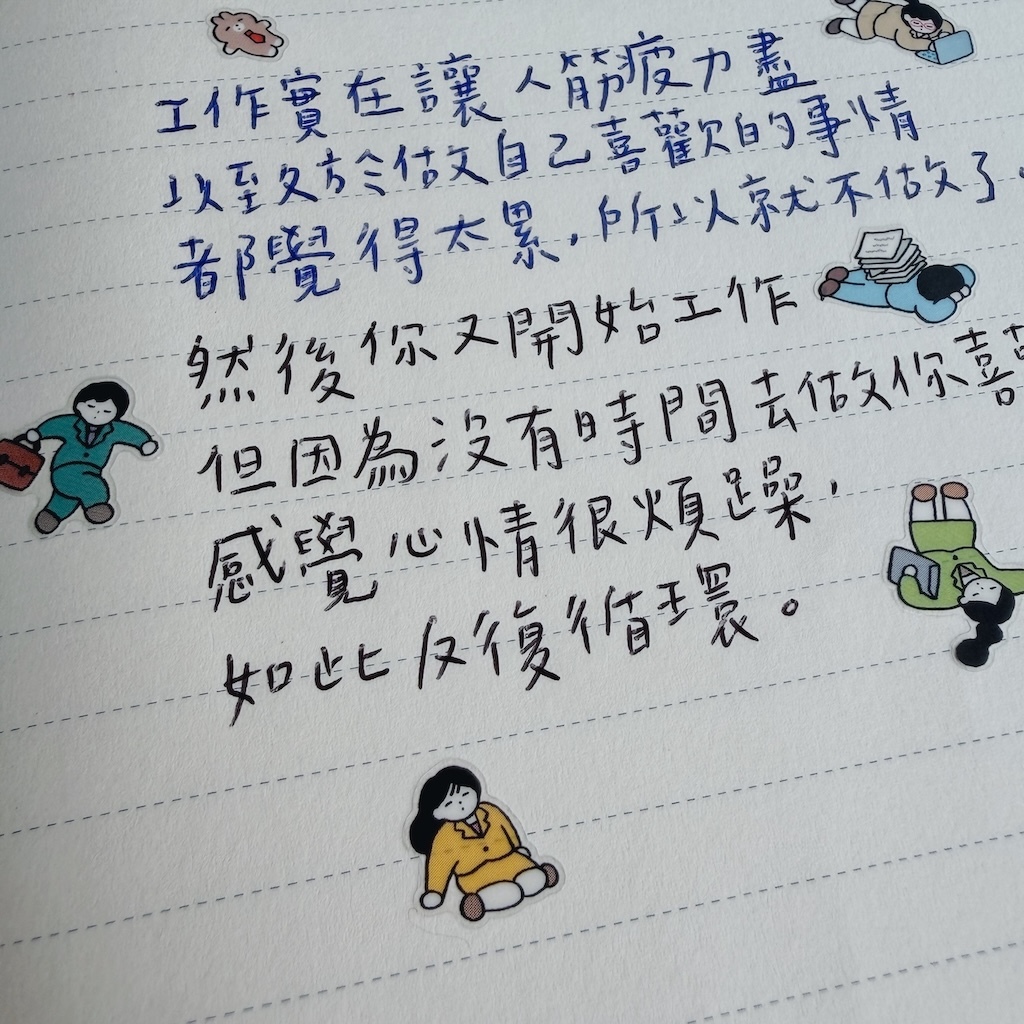 工作實在讓人筋疲力盡
以至於做自己喜歡的事情
都覺得太累，所以就不做了。
然後你又開始工作
但因為沒有時間去做你喜
感覺心情很煩躁，
如此反復循環。